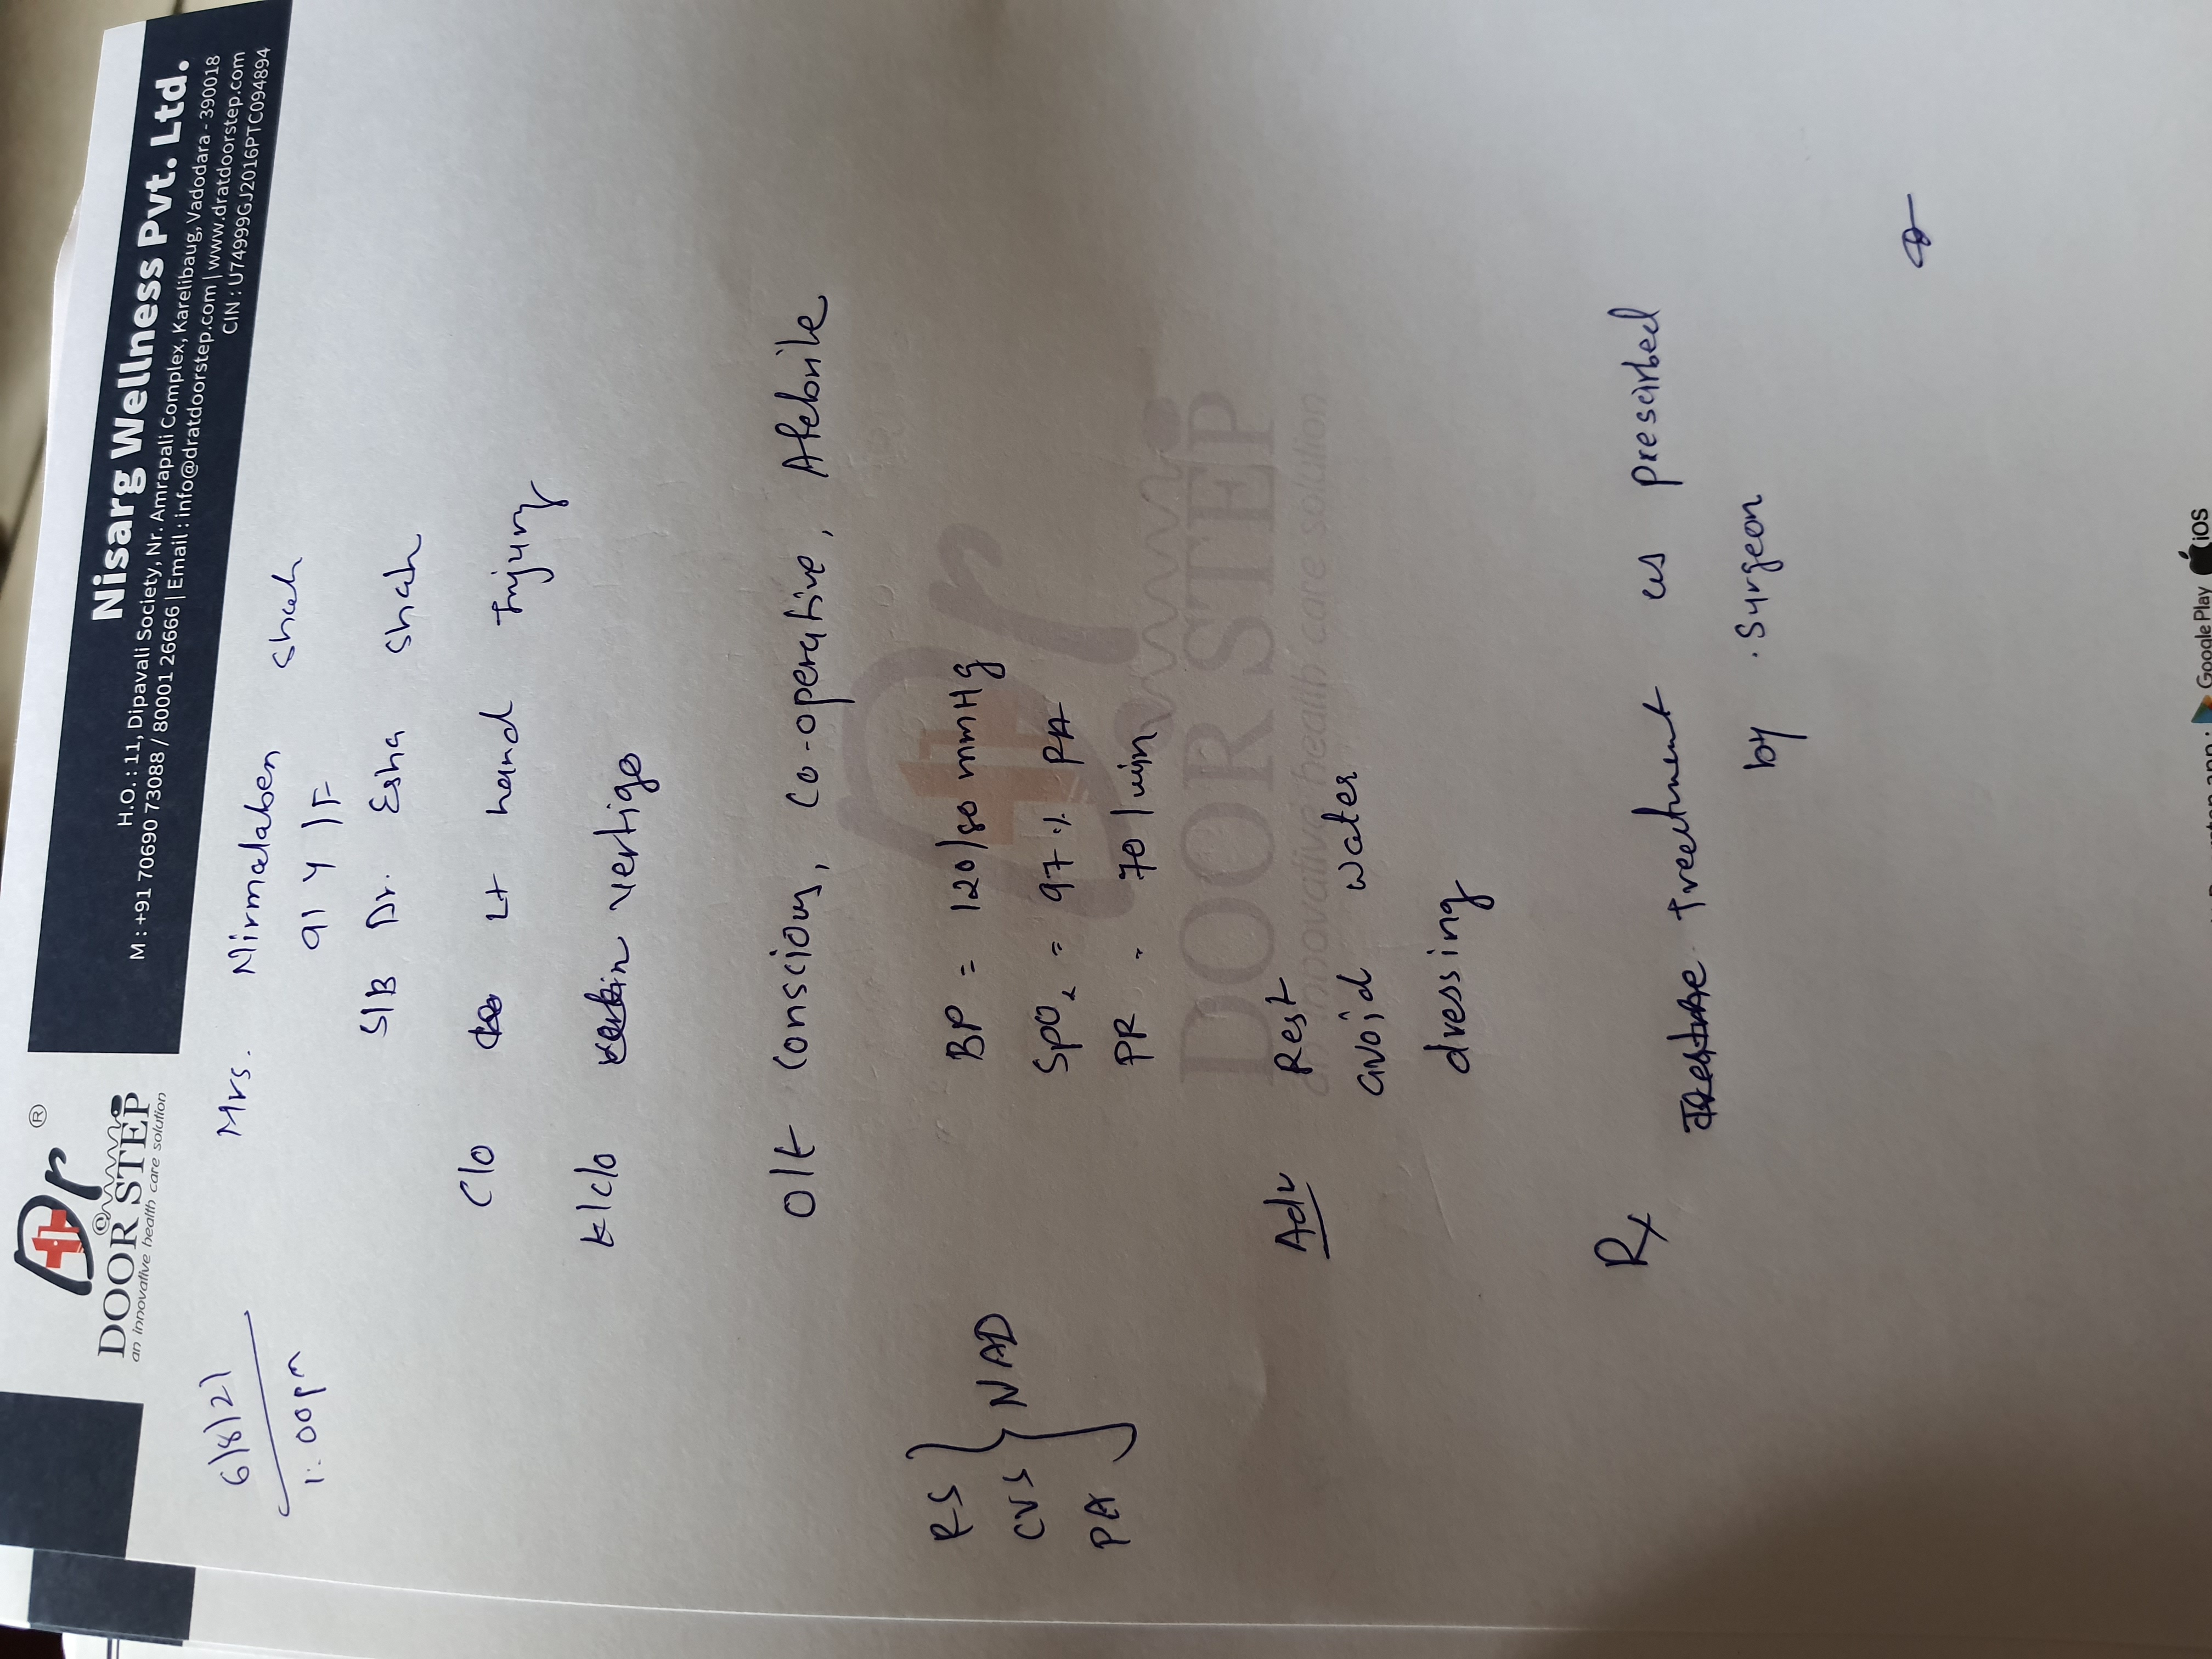 Dr ®
DOOR STEP
an innovative health care solution
Nisarg Wellness Pvt. Ltd.
H.O. : 11, Dipavali Society, Nr. Amrapali Complex, Karelibaug, Vadodara - 390018
M : +91 70690 73088 / 80001 26666 | Email : info@dratdoorstep.com | www.dratdoorstep.com
CIN : U74999GJ2016PTC094894
6/8/21
1:00pm
Mrs. Nirmalaben Shah
91 Y / F
S/B Dr. Esha Shah
C/o Lt hand Injury
k/c/o vertigo
O/E Conscious, Co-operative, Afebrile
RS
CVS
PA
NAD
BP = 120/80 mmHg
SpO2 = 97 % RA
PR - 70 / min
Dr
DOOR STEP
an innovative health care solution
Adv Rest
avoid water
dressing
Rx
Treatment as prescirbed
by surgeon
app : Google Play iOS